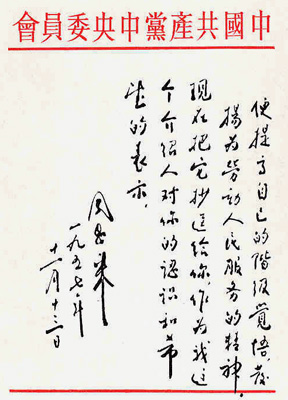 中國共產黨中央委員會
便提高自己的階級覺悟，發
揚为勞動人民服務的精神。
現在把它抄送给你，作为我這
个介紹人对你的認識和希
望的表示。
周恩来
一九五七年
十一月十三日